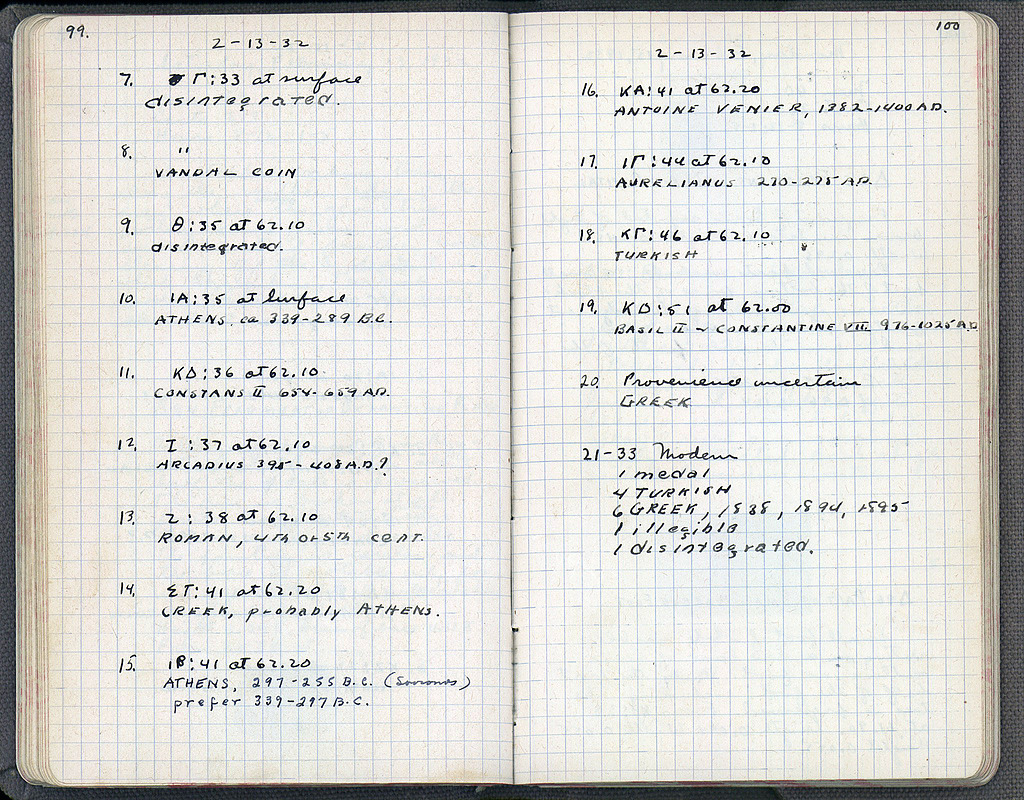 99.
2-13-32
7. Γ:33 at surface
disintegrated.
8. "
VANDAL COIN
9. Θ:35 at 62.10
disintegrated.
10. IA:35 at surface
ATHENS. ca 339-289 B.C.
11. KΔ:36 at 62.10
CONSTANS II 654-659 AD.
12. I:37 at 62.10
ARCADIUS 395-408 A.D.?
13. Z:38 at 62.10
ROMAN, 4th or 5th cent.
14. ΣΤ:41 at 62.20
GREEK, probably ATHENS.
15. IB:41 at 62.20
ATHENS, 297-255 B.C. (Svoronos)
prefer 339-297 B.C.
100
2-13-32
16. KA:41 at 62.20
ANTOINE VENIER, 1382-1400 AD.
17. IΓ:44 at 62.10
AURELIANUS 270-275 AD.
18. KΓ:46 at 62.10
TURKISH
19. KΔ:51 at 62.00
BASIL II - CONSTANTINE VIII 976-1025 A.D.
20. Provenience uncertain
GREEK
21-33 Modern
1 medal
4 TURKISH
6 GREEK, 1838, 1894, 1895
1 illegible
1 disintegrated.